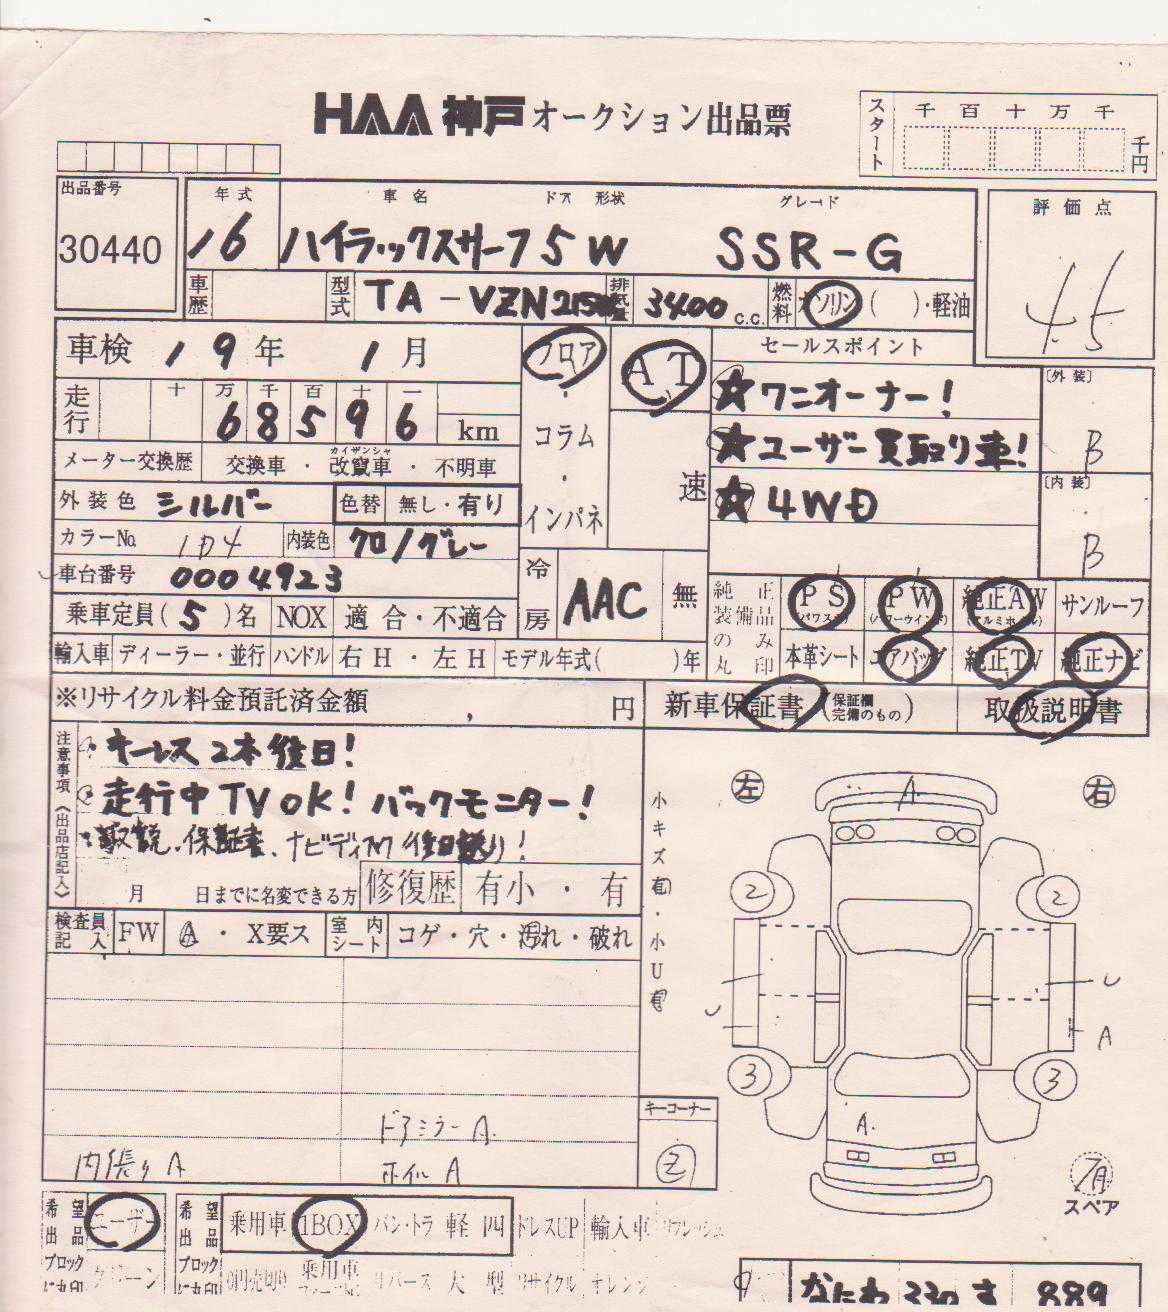 HAA 神戸 オークション出品票
スタート 千 百 十 万 千 千円
出品番号 年式 車名 ドア 形状 グレード 評価点
30440 16 ハイラックスサーフ 5 W SSR-G 4.5
車歴 型式 TA-VZN215W 排気量 3400 c.c. 燃料 ガソリン ( )・軽油
車検 19年 1月 フロア AT セールスポイント
走行 十 万 千 百 十 一 ★ワンオーナー! 〔外装〕
6 8 5 9 6 km コラム ★ユーザー買取り車! B
メーター交換歴 交換車・改竄車・不明車 カイザンシャ
外装色 シルバー 色替 無し・有り インパネ 速 ★4WD 〔内装〕
カラーNo. 1D4 内装色 クロ/グレー B
車台番号 0004923 冷房 AAC 無 純正装備品の み丸印 PS (パワステ) PW (パワーウインド) 純正AW (アルミホイル) サンルーフ
乗車定員(5)名 NOX 適合・不適合
輸入車 ディーラー・並行 ハンドル 右H・左H モデル年式( )年 本革シート エアバッグ 純正TV 純正ナビ
※リサイクル料金預託済金額 , 円 新車保証書 (保証欄完備のもの) 取扱説明書
注意事項《出品店記入》
・キーレス2本後日!
・走行中TVOK! バックモニター!
・取説、保証書、ナビディスク後日送り!
月 日までに名変できる方 修復歴 有小・有
検査員記入 FW A・X要ス 室内シート コゲ・穴・汚れ・破れ
小キズ有・小U有
左 右
A
2 2
U U
A
3 3
A.
キーコーナー
ドアミラーA.
内張りA ホイルA 2
有 スペア
希望出品ブロックに丸印 ユーザー 希望出品ブロックに丸印 乗用車 1BOX バン・トラ 軽 四 ドレスUP 輸入車 リフレッシュ
クリーン 0円売切り 乗用車 リバース 大型 リサイクル オレンジ
なにわ 330 す 889